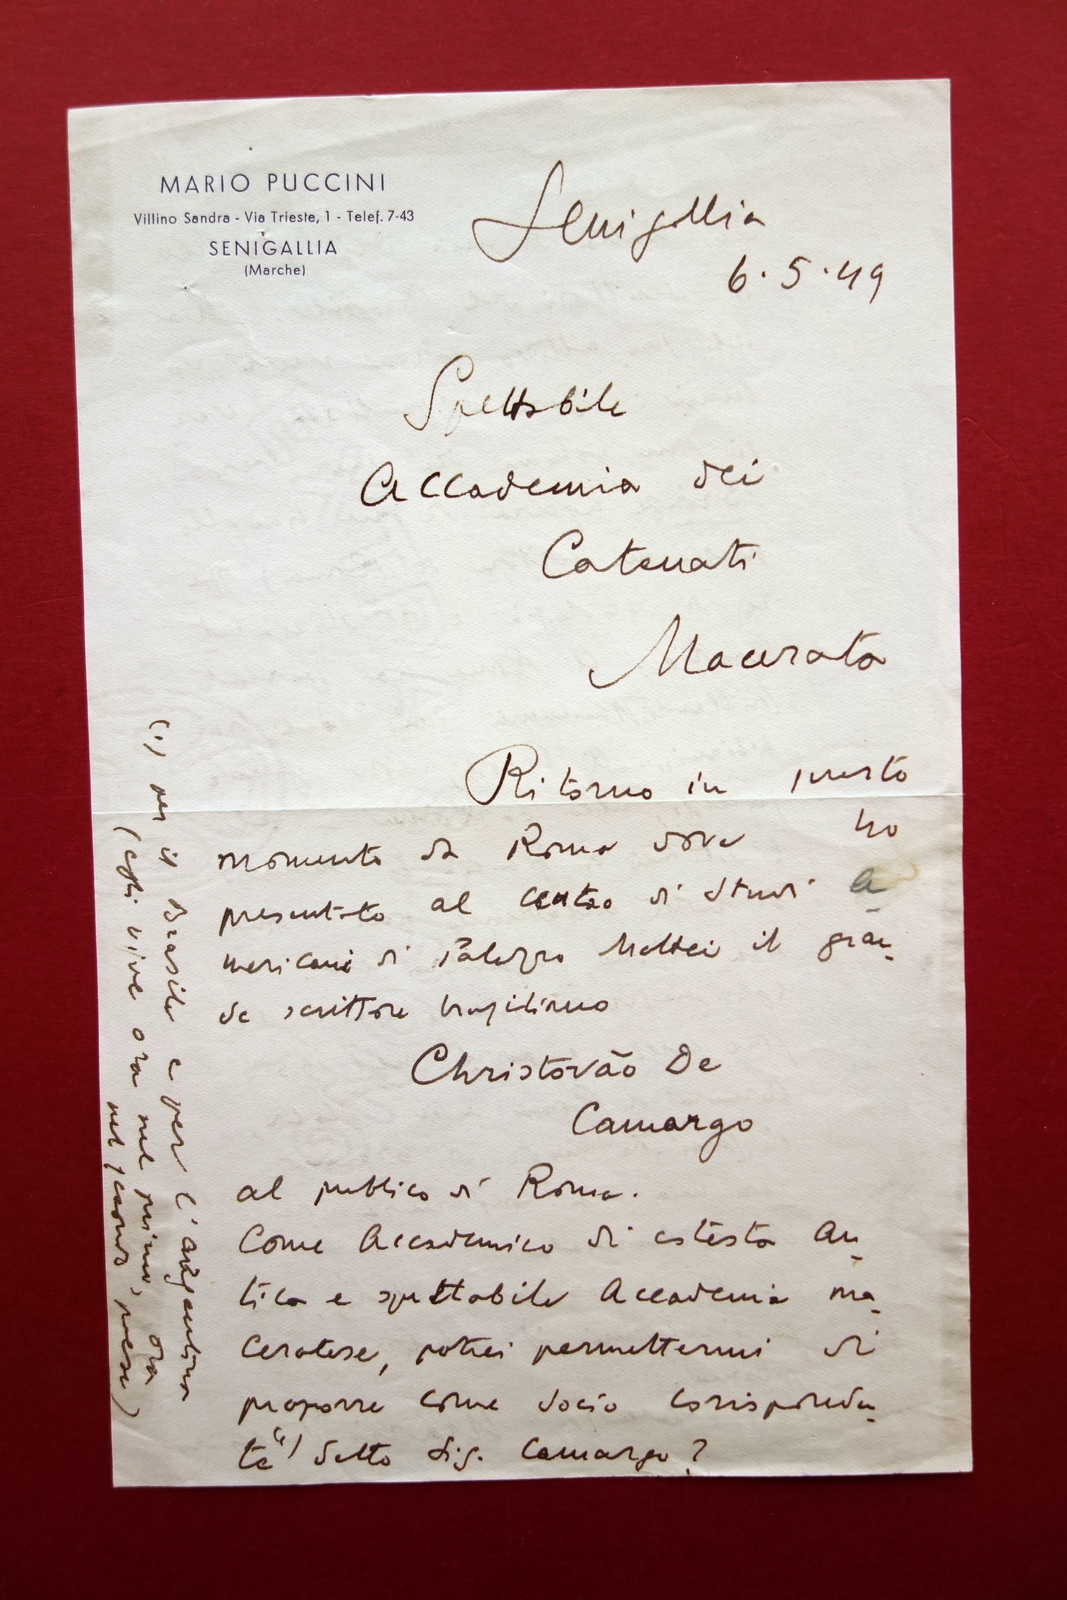 MARIO PUCCINI
Villino Sandra - Via Trieste, 1 - Telef. 7-43
SENIGALLIA
(Marche)
Senigallia
6.5.49
Spettabile
Accademia dei
Catenati
Macerata
Ritorno in questo
momento da Roma dove ho
presentato al centro di Studi a-
mericani di Palazzo Mattei il gran-
de scrittore brasiliano
Christovão De
Camargo
al pubblico di Roma.
Come Accademico di cotesta an-
tica e spettabile Accademia ma-
ceratese, potrei permettermi di
proporre come socio corisponden-
te (1) detto Sig. Camargo?
(1) per il Brasile e per l'argentina
(egli vive ora nel primo, ora
nel secondo paese)